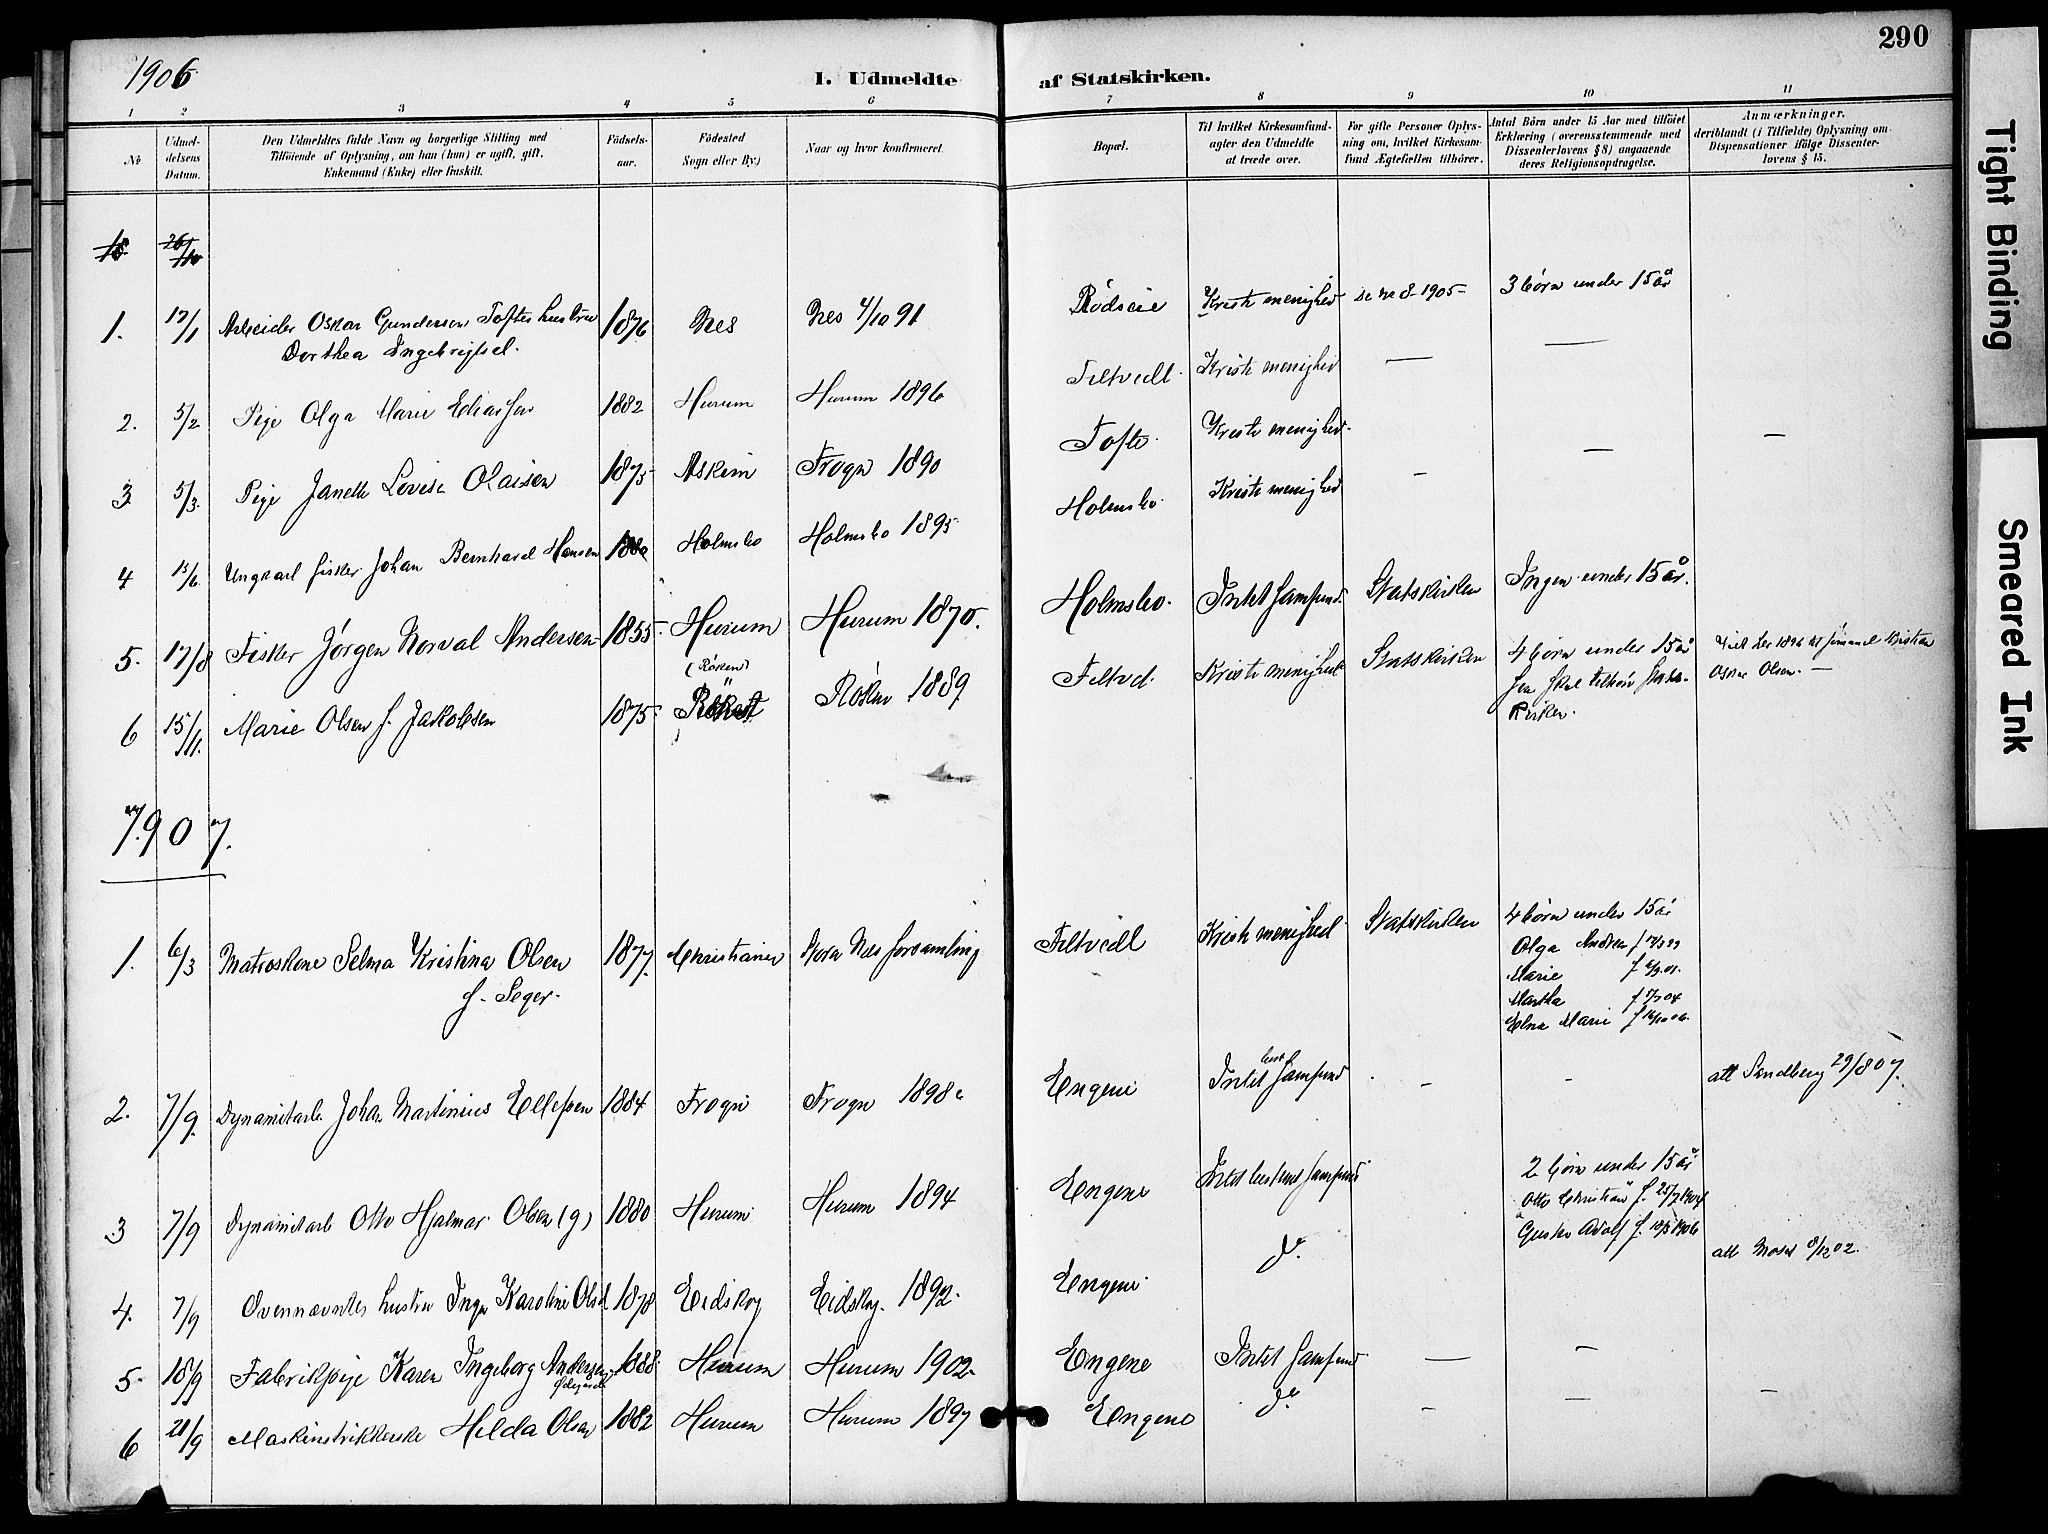 290
1906
I. Udmeldte af Statskirken.
1 2 3 4 5 6 7 8 9 10 11
No
Udmeldelsens Datum.
Den Udmeldtes fulde Navn og borgerlige Stilling med Tilföiende af Oplysning, om han (hun) er ugift, gift, Enkemand (Enke) eller fraskilt.
Födselsaar.
Födested Sogn eller By)
Naar og hvor konfirmeret.
Bopæl.
Til hvilket Kirkesamfund agter den Udmeldte at træde over.
For gifte Personer Oplysning om, hvilket Kirkesamfund Ægtefællen tilhörer.
Antal Börn under 15 Aar med tilföiet Erklæring (overensstemmende med Dissenterlovens § 8) angaaende deres Religionsopdragelse.
Anmærkninger, deriblandt (i Tilfælde) Oplysning om Dispensationer ifölge Dissenterlovens § 15.
18 26/10
1. 17/1 Arbeider Oskar Gundersen Toftes hustru 1876 Nes Nes 4/10 91 Rödseie Kristi menighed se no 8 1905 3 börn under 15 år
Dorthea Engebrigtsd.
2. 5/2 Pige Olga Marie Eliassen 1882 Hurum Hurum 1896 Filtvedt Kristi menighed — —
3 5/3. Pige Janette Lovise Olaisen 1875 Askim Frogn 1890 Tofte Kristi menighed. — —
4 13/6 Ungkarl fisker Johan Bernhard Hansen 1880 Holmsbo Holmsbo 1895 Holmsbo. Kristi menighed —
5. 17/8 Fisker Jörgen Norval Andersen 1855 Hurum Hurum 1870. Holmsbo. Intet Samfund. Statskirken Ingen under 15 år.
6 15/11. Marie Olsen f. Jakobsen 1875 (Röken) Röken 1889 Filtved. Kristi menighed Statskirken 4 börn under 15 år
skal tilhöre Stats-
kirken.
Gift 1896 Kristian
Oskar Olsen.
1907.
1. 6/3 Matroskone Selma Kristina Olsen 1877. Christiania Nes forsamling Filtvedt Kristi menighed Statskirken 4 börn under 15 år
f. Seger.
Olga Andrea f
Marie f
Martha f 04
Edna Marie f 06.
2. 7/9. Dynamitarb. Johan Martinius Ellefsen 1884 Frogn Frogn 1898 Engene Intet best Samfund — — att Sandberg 29/8 07.
3 7/9 Dynamitarb Otto Hjalmar Olsen (g) 1880 Hurum Hurum 1894 Engene Intet bestemt samfund 2 börn under 15 år
Otto Christian f. 25/7 1904
Gustav Adolf f. 1906
4. 7/9 Ovennævntes hustru Inga Karoline Olsen 1878 Eidskog Eidskog. 1892. Engene do. att Moss 8/12 02.
5. 18/9 Fabrikpige Karen Ingeborg Andersen 1888. Hurum Hurum 1902. Engene Intet Samfund — —
6 28/9 Maskinstrikkerske Hilda Olsen 1882 Hurum Hurum 1897 Engene do. — — —
Tight Binding
Smeared Ink